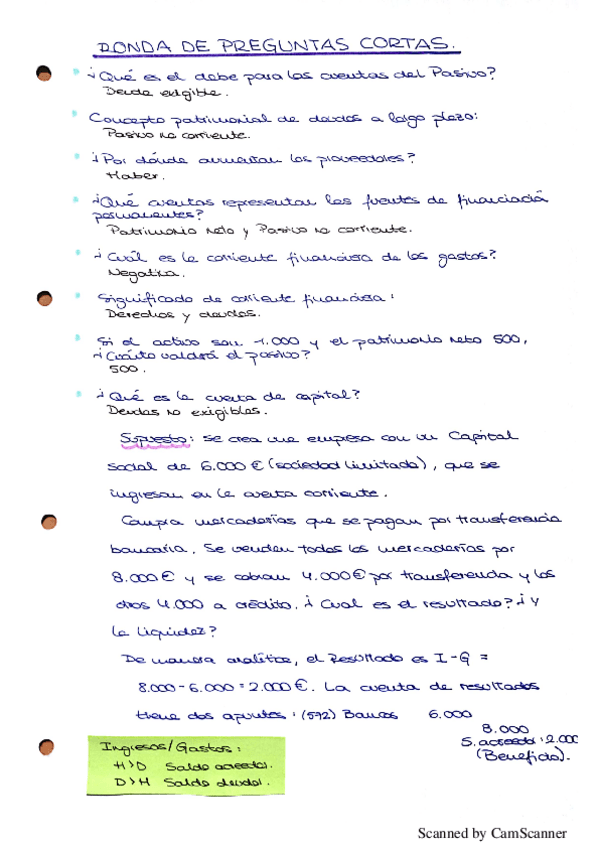 RONDA DE PREGUNTAS CORTAS.
¿Qué es el debe para las cuentas del Pasivo?
Deuda exigible.
Concepto patrimonial de deudas a largo plazo:
Pasivo no corriente.
¿Por dónde aumentan los proveedores?
Haber.
¿Qué cuentas representan las fuentes de financiació
permanentes?
Patrimonio Neto y Pasivo no corriente.
¿Cuál es la corriente financiera de los gastos?
Negativa.
Significado de corriente financiera:
Derechos y deudas.
Si el activo son 1.000 y el patrimonio neto 500,
¿Cuánto valdrá el pasivo?
500.
¿Qué es la cuenta de capital?
Deudas no exigibles.
Supuesto: se crea una empresa con un Capital
social de 6.000€ (sociedad limitada), que se
ingresan en la cuenta corriente.
Compra mercaderías que se pagan por transferencia
bancaria. Se venden todas las mercaderías por
8.000€ y se cobran 4.000€ por transferencia y los
otros 4.000 a crédito. ¿Cual es el resultado? ¿Y
la liquidez?
De manera analítica, el Resultado es I-G =
8.000-6.000=2.000€. La cuenta de resultados
tiene dos apuntes: (572) Bancos 6.000
8.000
S. acreedor: 2.000
(Beneficio).
Ingresos/Gastos:
H>D Saldo acreedor.
D>H Saldo deudor.
Scanned by CamScanner